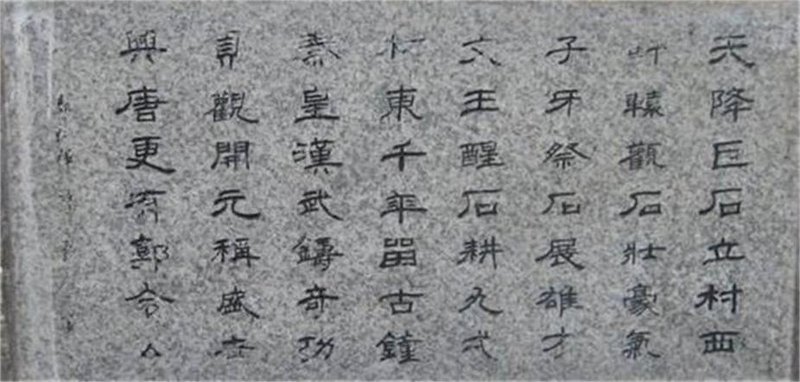 天降巨石立村西
軒轅觀石壯豪氣
子牙祭石展雄才
文王醒石耕九
村東千年留古鐘
秦皇漢武鑄奇功
貞觀開元稱盛世
興唐更有郭令公